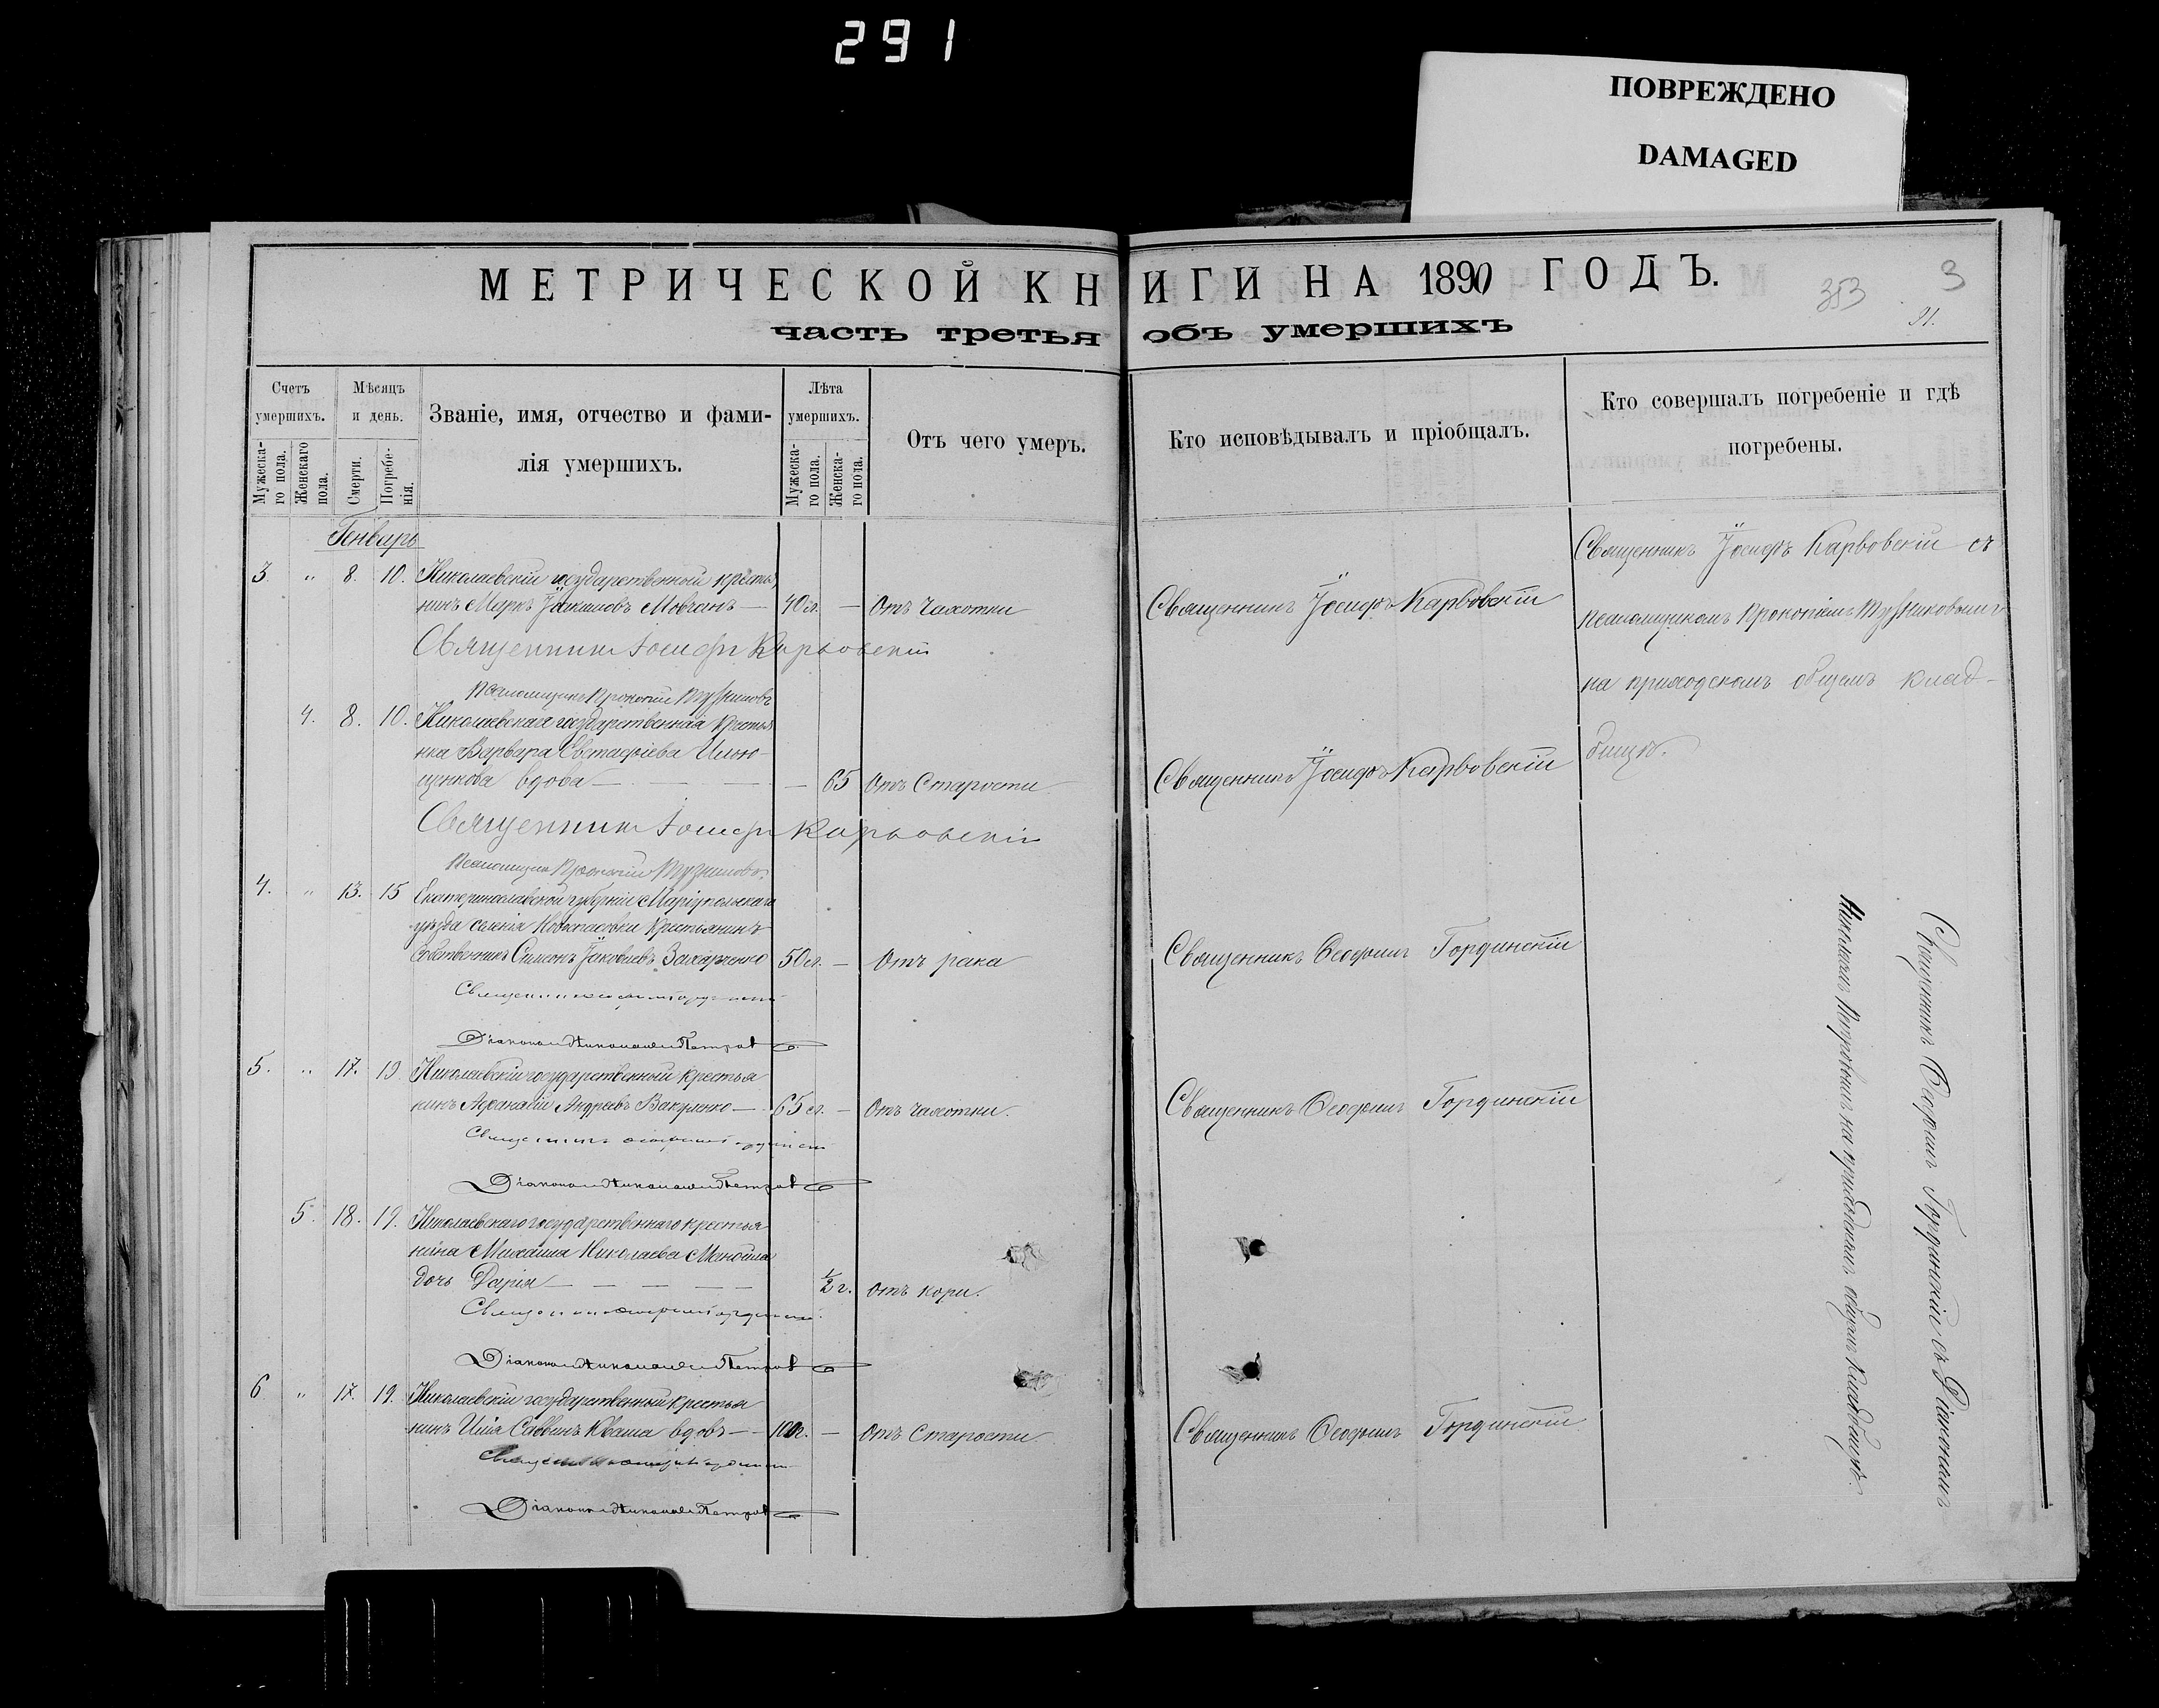 291
ПОВРЕЖДЕНО
DAMAGED
МЕТРИЧЕСКОЙ КНИГИ НА 1890 ГОДЪ.
353
3
91.
часть третья объ умершихъ
Счетъ умершихъ.
Мужеска-
го пола.
Женскаго
пола.
Мѣсяцъ
и день.
Смерти.
Погребе-
нія.
Званіе, имя, отчество и фами-
лія умершихъ.
Лѣта
умершихъ.
Мужеска-
го пола.
Женска-
го пола.
Отъ чего умеръ.
Кто исповѣдывалъ и пріобщалъ.
Кто совершалъ погребеніе и гдѣ
погребены.
Генварь
3. " 8. 10. Николаевскій государственный крестья
нинъ Маркъ Мовчанъ — 40 л. — Отъ чахотки
Священникъ Іосифъ Карвовскій
Священникъ Іосифъ Карвовскій
Псаломщикъ Прокопій
4. 8. 10. Николаевская государственная крестья
нка Варвара Евстафіева Илью-
щенкова вдова — — 65 Отъ Старости
Священникъ Іосифъ Карвовскій
Священникъ Іосифъ Карвовскій
Псаломщикъ Прокопій
4. " 13. 15 Екатеринославской губерніи Маріупольскаго
уѣзда селенія Новоспасовки Крестьянинъ
Собственникъ Симеонъ Яковлевъ Захарченко 50 л. — Отъ рака
Священникъ Ѳеофилъ Гординскій
Священникъ Ѳеофилъ Гординскій
Діаконъ Николай Петровъ
5. " 17. 19 Николаевскій государственный крестья
нинъ Афанасій Андреевъ Вакуленко — 65 л. — Отъ чахотки.
Священникъ Ѳеофилъ Гординскій
Священникъ Ѳеофилъ Гординскій
Діаконъ Николай Петровъ
5. 18. 19. Николаевскаго государственнаго крестья
нина Михаила Николаева Манойла
дочь Дарія — — — — ½ г. Отъ кори.
Священникъ Ѳеофилъ Гординскій
Діаконъ Николай Петровъ
6 " 17. 19. Николаевскій государственный крестья
нинъ Илія Саввинъ Кваша вдовъ — 100 г. — Отъ Старости
Священникъ Ѳеофилъ Гординскій
Священникъ Ѳеофилъ Гординскій
Діаконъ Николай Петровъ
Священникъ Іосифъ Карвовскій съ
псаломщикомъ Прокопіемъ
на приходскомъ общемъ клад-
бищѣ.
Священникъ Ѳеофилъ Гординскій съ Діакономъ
Николаемъ Петровымъ на приходскомъ общемъ кладбищѣ.